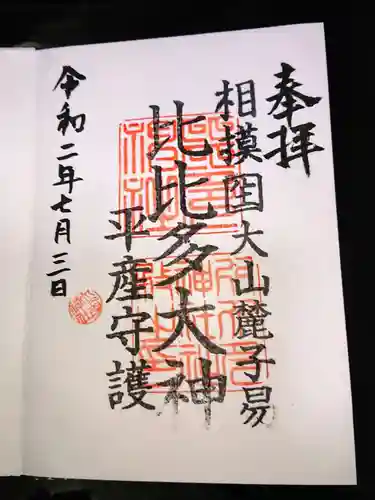 奉拝
相摸国大山麓子易
比比多大神
平産守護
令和二年七月三一日